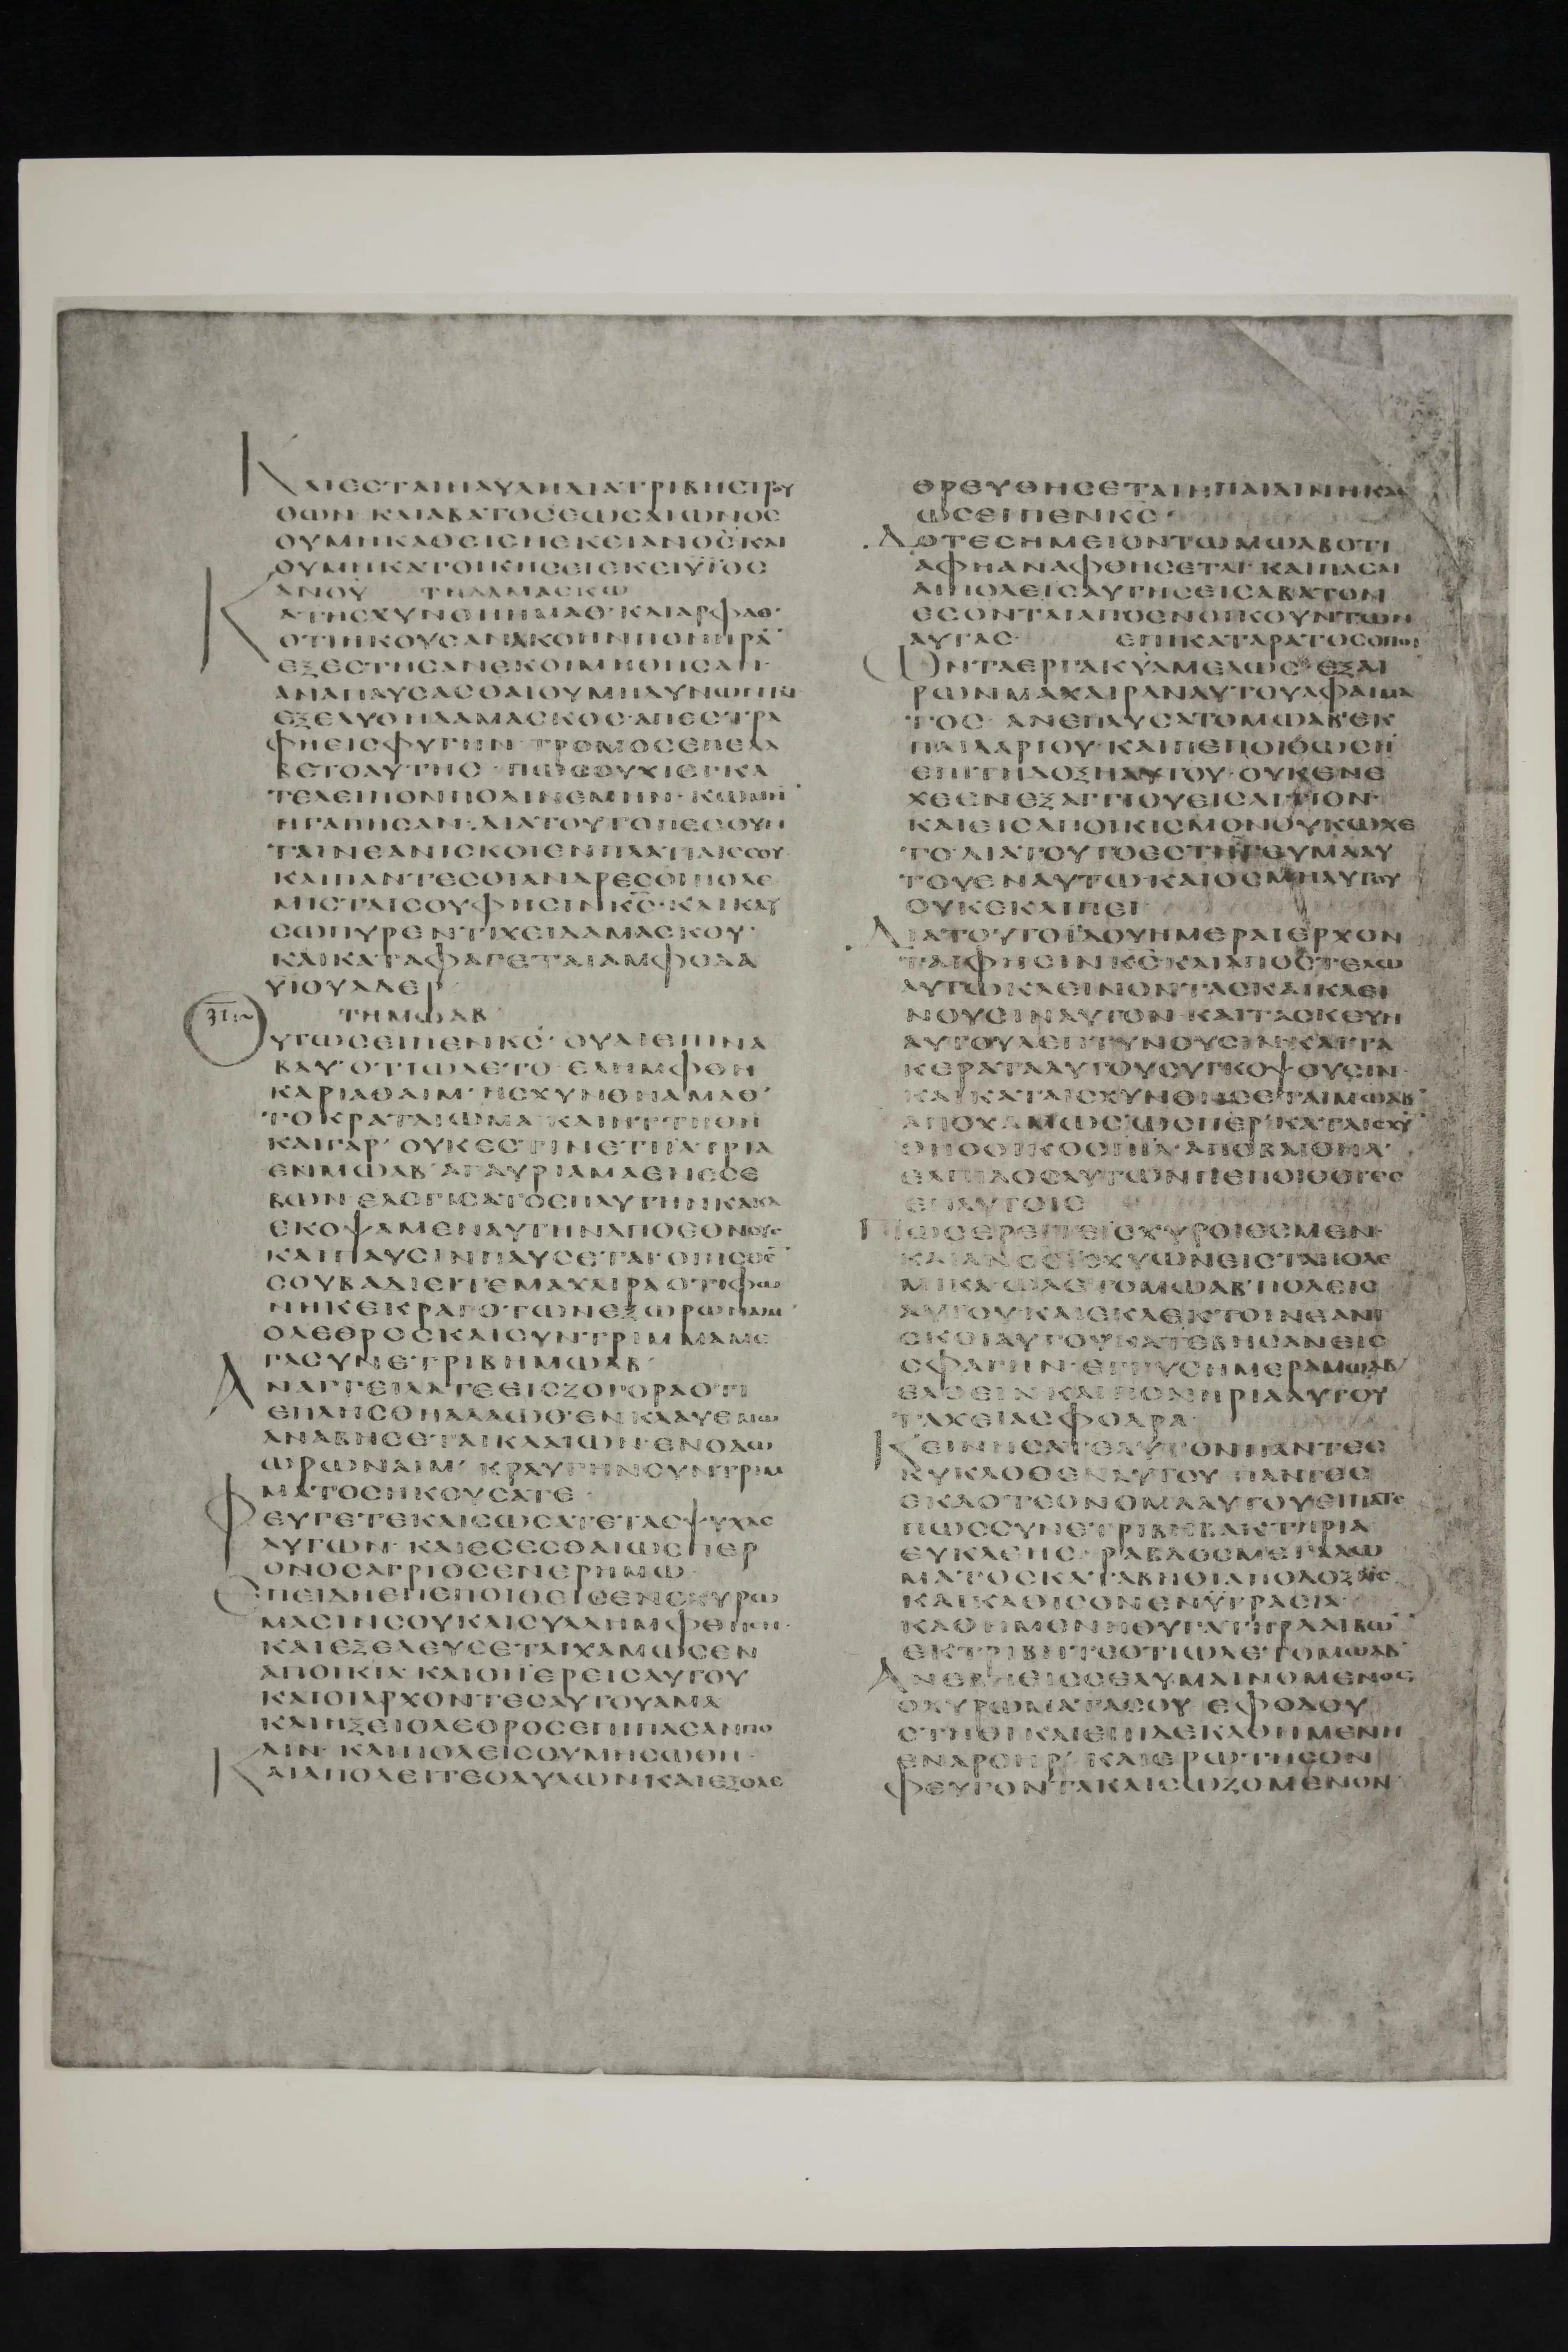 ΚΑΙΕCΤΑΙΗΑΥΛΗΔΙΑΤΡΙΒΗCΤΡΟΥ
ΘΩΝ· ΚΑΙΑΒΑΤΟCΕΩCΑΙΩΝΟC
ΟΥΜΗΚΑΘΕΙCΗΕΚΕΙΑΝΟCΚΑΙ
ΟΥΜΗΚΑΤΟΙΚΗCΕΙΕΚΕΙΥΪΟC
ΑΝΟΥ ΤΗΔΑΜΑCΚΩ
ΚΑΤΗCΧΥΝΘΗΗΜΑΘ· ΚΑΙΑΡΦΑΘ·
ΟΤΙΗΚΟΥCΑΝΑΚΟΗΝΠΟΝΗΡΑ
ΕΞΕCΤΗCΑΝΕΚΟΙΜΗΘΗCΑΝ·
ΑΝΑΠΑΥCΑCΘΑΙΟΥΜΗΔΥΝΩΝΤΑΙ
ΕΞΕΛΥΘΗΔΑΜΑCΚΟC· ΑΠΕCΤΡΑ
ΦΗΕΙCΦΥΓΗΝ· ΤΡΟΜΟCΕΠΕΛΑ
ΒΕΤΟΑΥΤΗC· ΠΩCΟΥΧΙΕΓΚΑ
ΤΕΛΕΙΠΟΝΠΟΛΙΝΕΜΗΝ· ΚΩΜΗ
ΗΓΑΠΗCΑΝ· ΔΙΑΤΟΥΤΟΠΕCΟΥΝ
ΤΑΙΝΕΑΝΙCΚΟΙΕΝΠΛΑΤΙΑΙCCΟΥ·
ΚΑΙΠΑΝΤΕCΟΙΑΝΔΡΕCΟΙΠΟΛΕ
ΜΙCΤΑΙCΟΥΦΗCΙΝΚC· ΚΑΙΚΑΥ
CΩΠΥΡΕΝΤΙΧΕΙΔΑΜΑCΚΟΥ·
ΚΑΙΚΑΤΑΦΑΓΕΤΑΙΑΜΦΟΔΑ
ΥΪΟΥΑΔΕΡ
ΤΗΜΩΑΒ
ΟΥΤΩCΕΙΠΕΝΚC· ΟΥΑΙΕΠΙΝΑ
ΒΑΥ· ΟΤΙΩΛΕΤΟ· ΕΛΗΜΦΘΗ
ΚΑΡΙΑΘΑΙΜ· ΗCΧΥΝΘΗΑΜΑΘ·
ΤΟΚΡΑΤΑΙΩΜΑ ΚΑΙΗΤΤΗΘΗ
ΚΑΙΓΑΡ· ΟΥΚΕCΤΙΝΕΤΙΪΑΤΡΙΑ
ΕΝΜΩΑΒ· ΑΓΑΥΡΙΑΜΑΕΝΕCΕ
ΒΩΝ· ΕΛΟΓΙCΑΤΟ
ΕΚΟΨΑΜΕΝΑΥΤΗΝΑΠΟΕΘΝΟΥC·
ΚΑΙΠΑΥCΙΝΠΑΥCΕΤΑΙ·
CΟΥΒΑΔΙΕΙΤΑΙΜΑΧΑΙΡΑΟΤΙΦΩ
ΝΗΚΕΚΡΑΓΟΤΩΝΕΞΩΡΩΝΑΙΜ·
ΟΛΕΘΡΟCΚΑΙCΥΝΤΡΙΜΜΑΜΕ
ΓΑCΥΝΕΤΡΙΒΗΜΩΑΒ·
ΑΝΑΓΓΕΙΛΑΤΕΕΙCΖΟΓΟΡΑΟΤΙ
ΕΠΛΗCΘΗΑΛΑΩΘ· ΕΝΚΛΑΥΘΜΩ
ΑΝΑΒΗCΕΤΑΙΚΛΑΙΩΝ· ΕΝΟΔΩ
ΩΡΩΝΑΙΜ· ΚΡΑΥΓΗΝCΥΝΤΡΙΜ
ΜΑΤΟCΗΚΟΥCΑΤΕ
ΦΕΥΓΕΤΕΚΑΙCΩCΑΤΕΤΑCΨΥΧΑC
ΑΥΤΩΝ· ΚΑΙΕCΕCΘΑΙΩCΠΕΡ
ΟΝΟCΑΓΡΙΟCΕΝΕΡΗΜΩ
ΕΠΕΙΔΗΕΠΕΠΟΙΘΕΙCΕΝΟΧΥΡΩ
ΜΑCΙΝCΟΥΚΑΙCΥΛΛΗΜΦΘΗCΗ·
ΚΑΙΕΞΕΛΕΥCΕΤΑΙΧΑΜΩCΕΝ
ΑΠΟΙΚΙΑ· ΚΑΙΟΙΪΕΡΕΙCΑΥΤΟΥ
ΚΑΙΟΙΑΡΧΟΝΤΕCΑΥΤΟΥΑΜΑ
ΚΑΙΗΞΕΙΟΛΕΘΡΟCΕΠΙΠΑCΑΝΠΟ
ΛΙΝ· ΚΑΙΠΟΛΕΙCΟΥΜΗCΩΘΗ·
ΚΑΙΑΠΟΛΕΙΤΕΟΑΥΛΩΝΚΑΙΕΞΟΛΕ
ΘΡΕΥΘΗCΕΤΑΙΗΠΑΙΔΙΝΗΚΑΘ
ΩCΕΙΠΕΝΚC·
ΔΟΤΕCΗΜΕΙΟΝΤΩΜΩΑΒΟΤΙ
ΑΦΗΑΝΑΦΘΗCΕΤΑΙ· ΚΑΙΠΑCΑΙ
ΑΙΠΟΛΕΙCΑΥΤΗCΕΙCΑΒΑΤΟΝ
ΕCΟΝΤΑΙΑΠΟΕΝΟΙΚΟΥΝΤΩΝ
ΑΥΤΑC· ΕΠΙΚΑΤΑΡΑΤΟCΟΠΟΙ
ΩΝΤΑΕΡΓΑΚΥΑΜΕΛΩC· ΕΞΑΙ
ΡΩΝΜΑΧΑΙΡΑΝΑΥΤΟΥΑΦΑΙΜΑ
ΤΟC· ΑΝΕΠΑΥCΑΤΟΜΩΑΒ· ΕΚ
ΠΑΙΔΑΡΙΟΥ· ΚΑΙΠΕΠΟΙΘΩCΗ
ΕΠΙΤΗΔΟΞΗΑΥΤΟΥ· ΟΥΚΕΝΕ
ΧΕΕΝΕΞΑΓΓΙΟΥΕΙCΑΓΓΙΟΝ·
ΚΑΙΕΙCΑΠΟΙΚΙCΜΟΝΟΥΚΩΧΕ
ΤΟ· ΔΙΑΤΟΥΤΟΕCΤΗΓΕΥΜΑΑΥ
ΤΟΥΕΝΑΥΤΩ· ΚΑΙΟCΜΗΑΥΤΟΥ
ΟΥΚΕΚΛΙΠΕΙ
ΔΙΑΤΟΥΤΟΪΔΟΥΗΜΕΡΑΙΕΡΧΟΝ
ΤΑΙΦΗCΙΝΚC· ΚΑΙΑΠΟCΤΕΛΩ
ΑΥΤΩΚΛΕΙΝΟΝΤΑCΚΑΙΚΛΕΙ
ΝΟΥCΙΝΑΥΤΟΝ· ΚΑΙΤΑCΚΕΥΗ
ΑΥΤΟΥΛΕΠΤΥΝΟΥCΙΝ· ΚΑΙΤΑ
ΚΕΡΑΤΑΑΥΤΟΥCΥΓΚΟΨΟΥCΙΝ·
ΚΑΙΚΑΤΑΙCΧΥΝΘΗCΕΤΑΙΜΩΑΒ
ΑΠΟΧΑΜΩC· ΩCΠΕΡ· ΚΑΤΑΙCΧΥ
ΘΗΟΟΙΚΟCΙΗΛ· ΑΠΟΒΑΙΘΗΛ·
ΕΛΠΙΔΟCΑΥΤΩΝΠΕΠΟΙΘΟΤΕC
ΕΠΑΥΤΟΙC
ΠΩCΕΡΕΙΤΕΪCΧΥΡΟΙΕCΜΕΝ·
ΚΑΙΑΝΟCΪCΧΥΩΝΕΙCΤΑΠΟΛΕ
ΜΙΚΑ· ΩΛΕΤΟΜΩΑΒ· ΠΟΛΕΙC
ΑΥΤΟΥ· ΚΑΙΕΚΛΕΚΤΟΙΝΕΑΝΙ
CΚΟΙΑΥΤΟΥΚΑΤΕΒΗCΑΝΕΙC
CΦΑΓΗΝ· ΕΓΓΥCΗΜΕΡΑΜΩΑΒ
ΕΛΘΕΙΝ· ΚΑΙΠΟΝΗΡΙΑΑΥΤΟΥ
ΤΑΧΕΙΑCΦΟΔΡΑ·
ΚΕΙΝΗCΑΤΕΑΥΤΟΝΠΑΝΤΕC
ΚΥΚΛΟΘΕΝΑΥΤΟΥ· ΠΑΝΤΕC
ΕΙΔΟΤΕCΟΝΟΜΑΑΥΤΟΥΕΙΠΑΤΕ
ΠΩCCΥΝΕΤΡΙΒΗΒΑΚΤΗΡΙΑ
ΕΥΚΛΕΗC· ΡΑΒΔΟCΜΕΓΑΛΩ
ΜΑΤΟCΚΑΤΑΒΗΘΙΑΠΟΔΟΞΗC
ΚΑΙΚΑΘΙCΟΝΕΝΫΓΡΑCΙΑ·
ΚΑΘΗΜΕΝΗΘΥΓΑΤΗΡΔΑΙΒΩ
ΕΚΤΡΙΒΗΤΕΟΤΙΩΛΕΤΟΜΩΑΒ
ΑΝΕΒΗΕΙCCΕΛΥΜΑΙΝΟΜΕΝΟC
ΟΧΥΡΩΜΑΤΑCΟΥ· ΕΦΟΔΟΥ
CΤΗΘΙΚΑΙΕΠΙΔΕΚΑΘΗΜΕΝΗ
ΕΝΑΡΟΗΡ· ΚΑΙΕΡΩΤΗCΟΝ
ΦΕΥΓΟΝΤΑΚΑΙCΩΖΟΜΕΝΟΝ